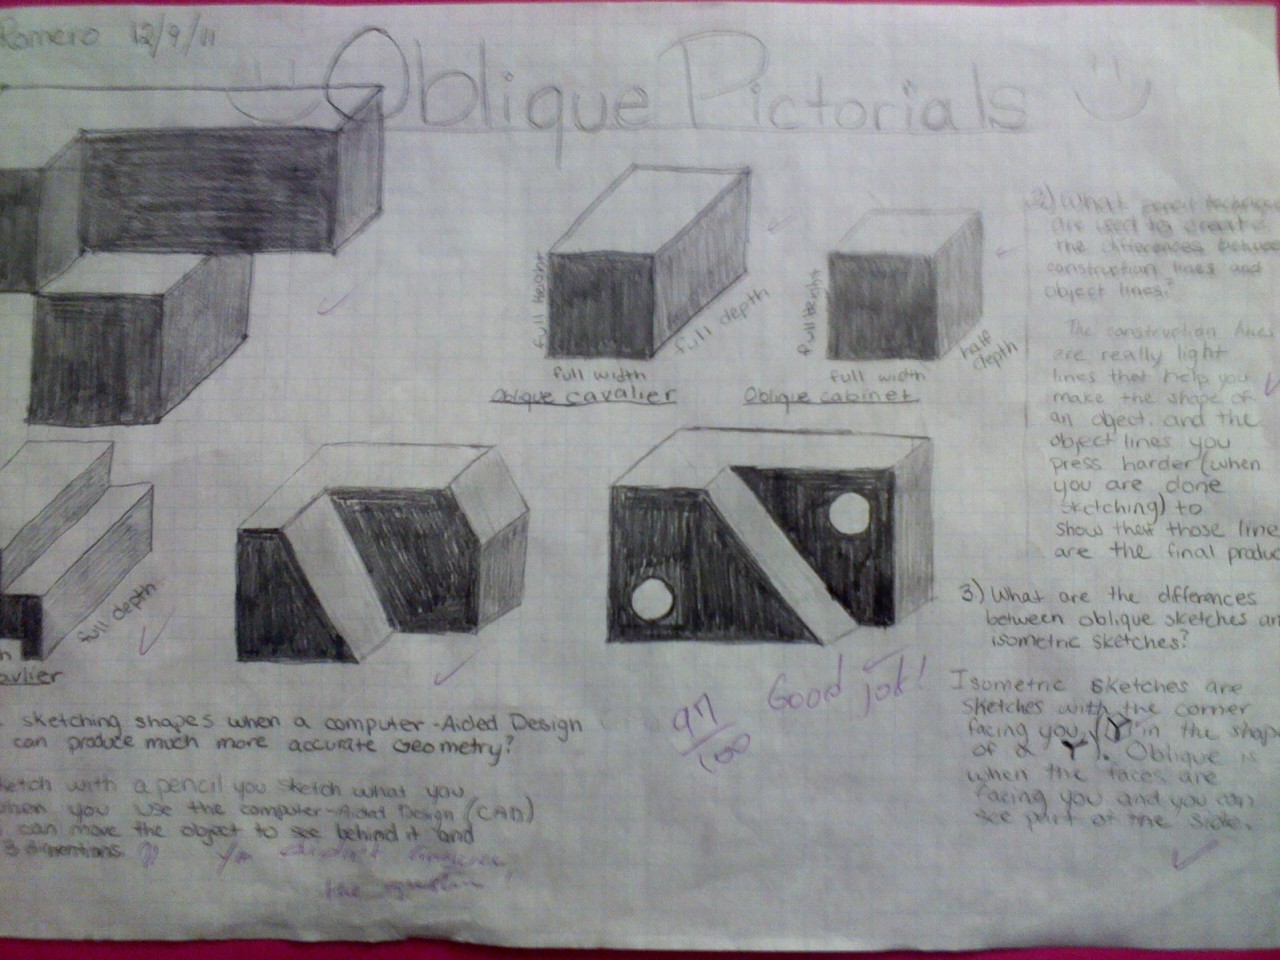 Romero 12/9/11
Oblique Pictorials
full height
full depth
full width
Oblique cavalier
full height
half
depth
full width
Oblique cabinet
2) What pencil
are used to create
the differences between
construction lines and
object lines?
The construction lines
are really light
lines that help you
make the shape of
an object. and the
object lines you
press harder (when
you are done
sketching) to
show that those line
are the final produc
full depth
avlier
3) What are the differences
between oblique sketches an
isometric sketches?
Isometric sketches are
sketches with the corner
facing you, in the shap
of a Y). Oblique is
when the faces are
facing you and you can
see part of the side.
97
100
Good job!
sketching shapes when a computer-Aided Design
can produce much more accurate Geometry?
ketch with a pencil you sketch what you
when you use the computer-Aided Design (CAD)
can move the object to see behind it and
3 dimentions.
You didn't
the question